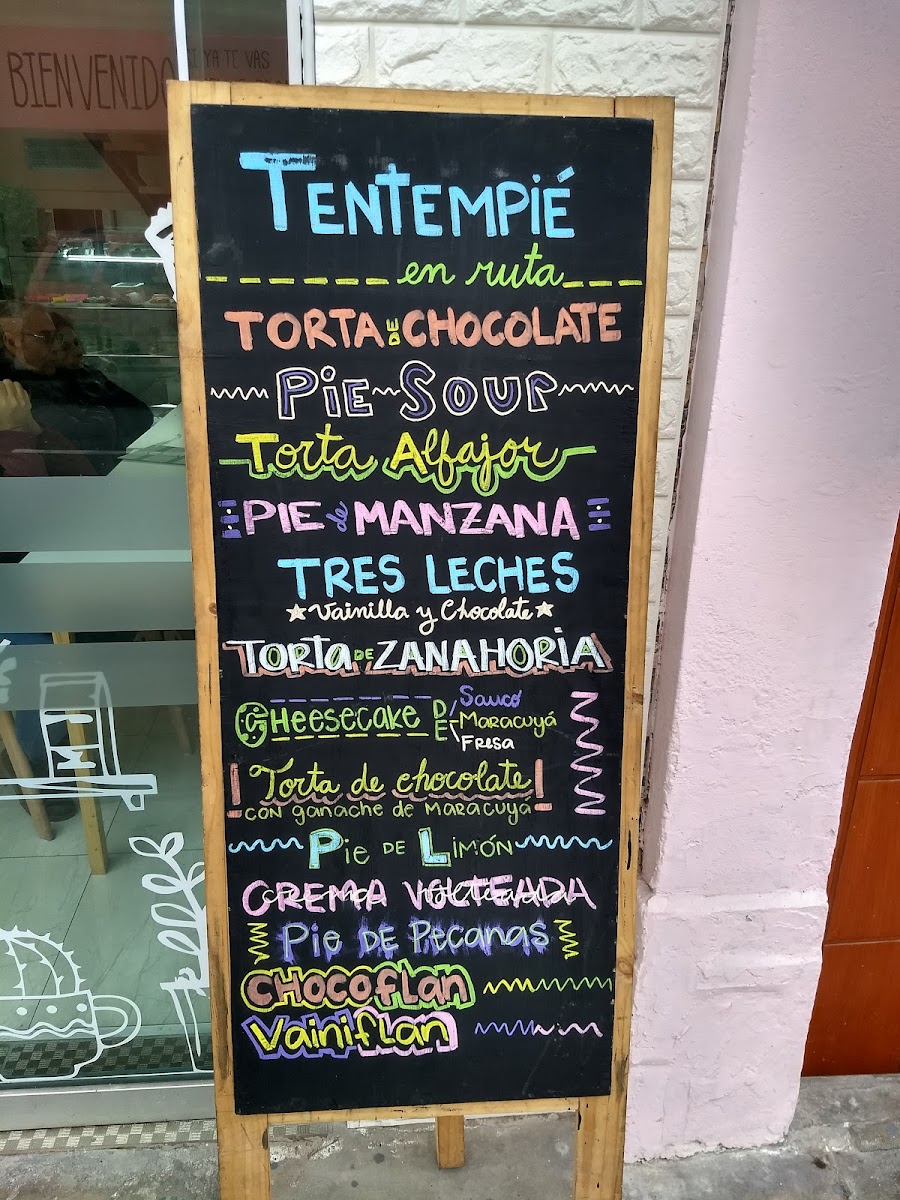 BIENVENIDO
YA TE VAS
TENTEMPIÉ
en ruta
TORTA DE CHOCOLATE
PIE SOUR
Torta Alfajor
PIE de MANZANA
TRES LECHES
Vainilla y Chocolate
TORTA DE ZANAHORIA
CHEESECAKE DE
Sauco
Maracuyá
Fresa
Torta de chocolate
CON ganache de MaRacuyá
Pie DE LIMÓN
CREMA VOLTEADA
Pie DE Pecanas
CHOCOFLAN
Vainiflan